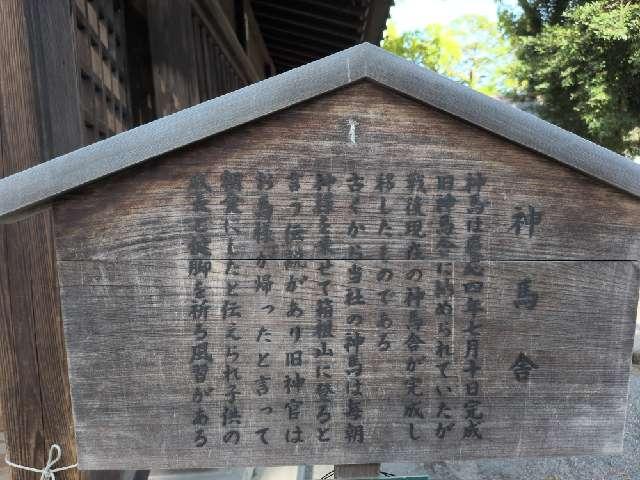 神馬舎
神馬は慶応四年七月十日完成
旧神馬舎に納められていたが
戦後現在の神馬舎が完成し
移したものである
古くから当社の神馬は毎朝
神様を乗せて箱根山に登ると
言う伝説があり旧神官は
お馬様が帰ったと言って
朝業にしたと伝えられ子供の
成長と健脚を祈る風習がある